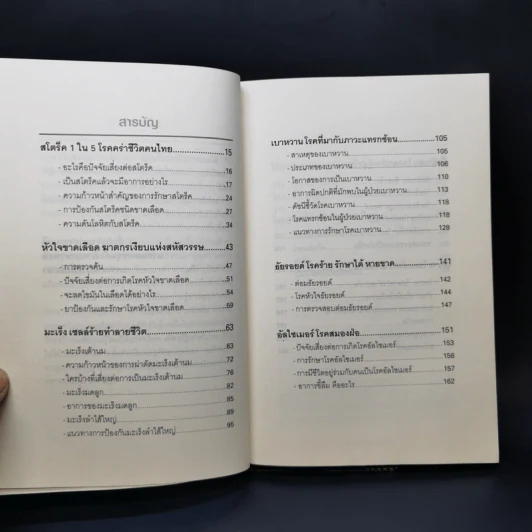 สารบัญ
สโตร็ค 1 ใน 5 โรคคร่าชีวิตคนไทย 15
- อะไรคือปัจจัยเสี่ยงต่อสโตร็ค 16
- เป็นสโตร็คแล้วจะมีอาการอย่างไร 17
- ความก้าวหน้าสำคัญของการรักษาสโตร็ค 24
- การป้องกันสโตร็คชนิดขาดเลือด 27
- ความดันโลหิตกับสโตร็ค 34
หัวใจขาดเลือด ฆาตกรเงียบแห่งสหัสวรรษ 43
- การตรวจค้น 47
- ปัจจัยเสี่ยงต่อการเกิดโรคหัวใจขาดเลือด 51
- จะลดไขมันในเลือดได้อย่างไร 54
- ยาป้องกันและรักษาโรคหัวใจขาดเลือด 59
มะเร็ง เซลล์ร้ายทำลายชีวิต 63
- มะเร็งเต้านม
- ความก้าวหน้าของการผ่าตัดมะเร็งเต้านม 72
- ใครบ้างที่เสี่ยงต่อการเป็นมะเร็งเต้านม 76
- มะเร็งมดลูก
- อาการของมะเร็งมดลูก
- มะเร็งลำไส้ใหญ่
- แนวทางการป้องกันมะเร็งลำไส้ใหญ่ 95
เบาหวาน โรคที่มากับภาวะแทรกซ้อน 105
- สาเหตุของเบาหวาน 105
- ประเภทของเบาหวาน 106
- โอกาสของการเป็นเบาหวาน 110
- อาการผิดปกติที่มักพบในผู้ป่วยเบาหวาน 113
- ดัชนีชี้วัดโรคเบาหวาน 113
- โรคแทรกซ้อนในผู้ป่วยเบาหวาน 118
- แนวทางการรักษาโรคเบาหวาน 128
ธัยรอยด์ โรคร้าย รักษาได้ หายขาด 141
- ต่อมธัยรอยด์ 142
- โรคหัวใจธัยรอยด์ 144
- การตรวจสอบต่อมธัยรอยด์ 147
อัลไซเมอร์ โรคสมองฝ่อ 151
- ปัจจัยเสี่ยงต่อการเกิดโรคอัลไซเมอร์ 153
- การรักษาโรคอัลไซเมอร์ 156
- การมีชีวิตอยู่ร่วมกับคนเป็นโรคอัลไซเมอร์ 157
- อาการขี้ลืม คืออะไร 162